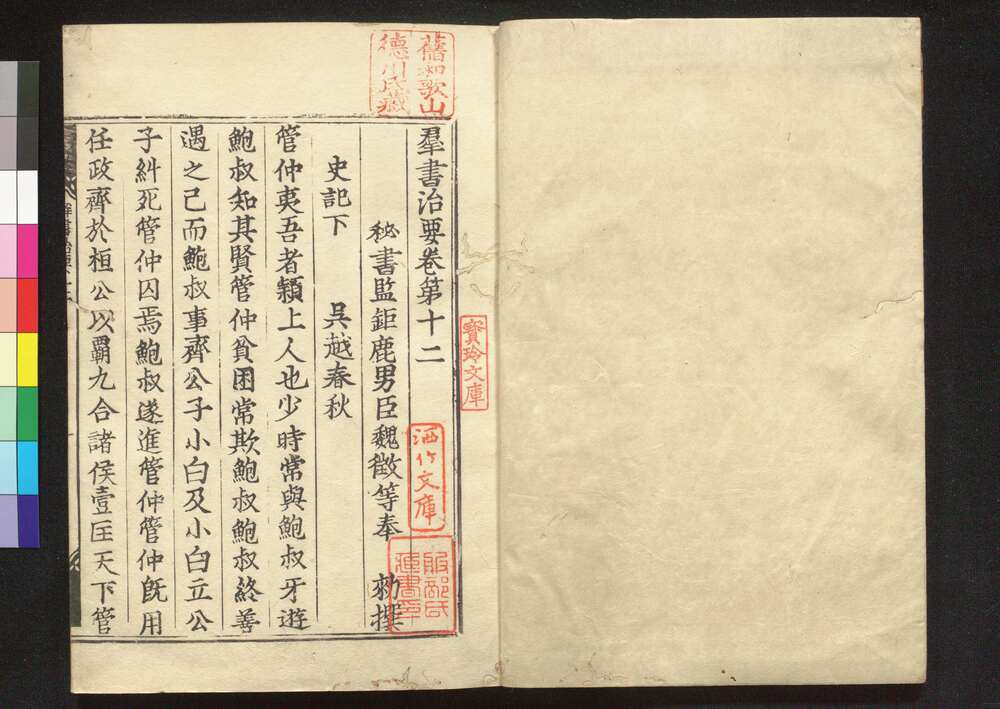 羣書治要卷第十二
秘書監鉅鹿男臣魏徵等奉　勑撰
史記下　吳越春秋
管仲夷吾者穎上人也少時常與鮑叔牙遊
鮑叔知其賢管仲貧困常欺鮑叔鮑叔終善
遇之已而鮑叔事齊公子小白及小白立公
子糾死管仲囚焉鮑叔遂進管仲管仲旣用
任政齊於桓公以霸九合諸侯壹匡天下管
舊和歌山
德川氏藏
寶玲文庫
洒竹文庫
服部氏